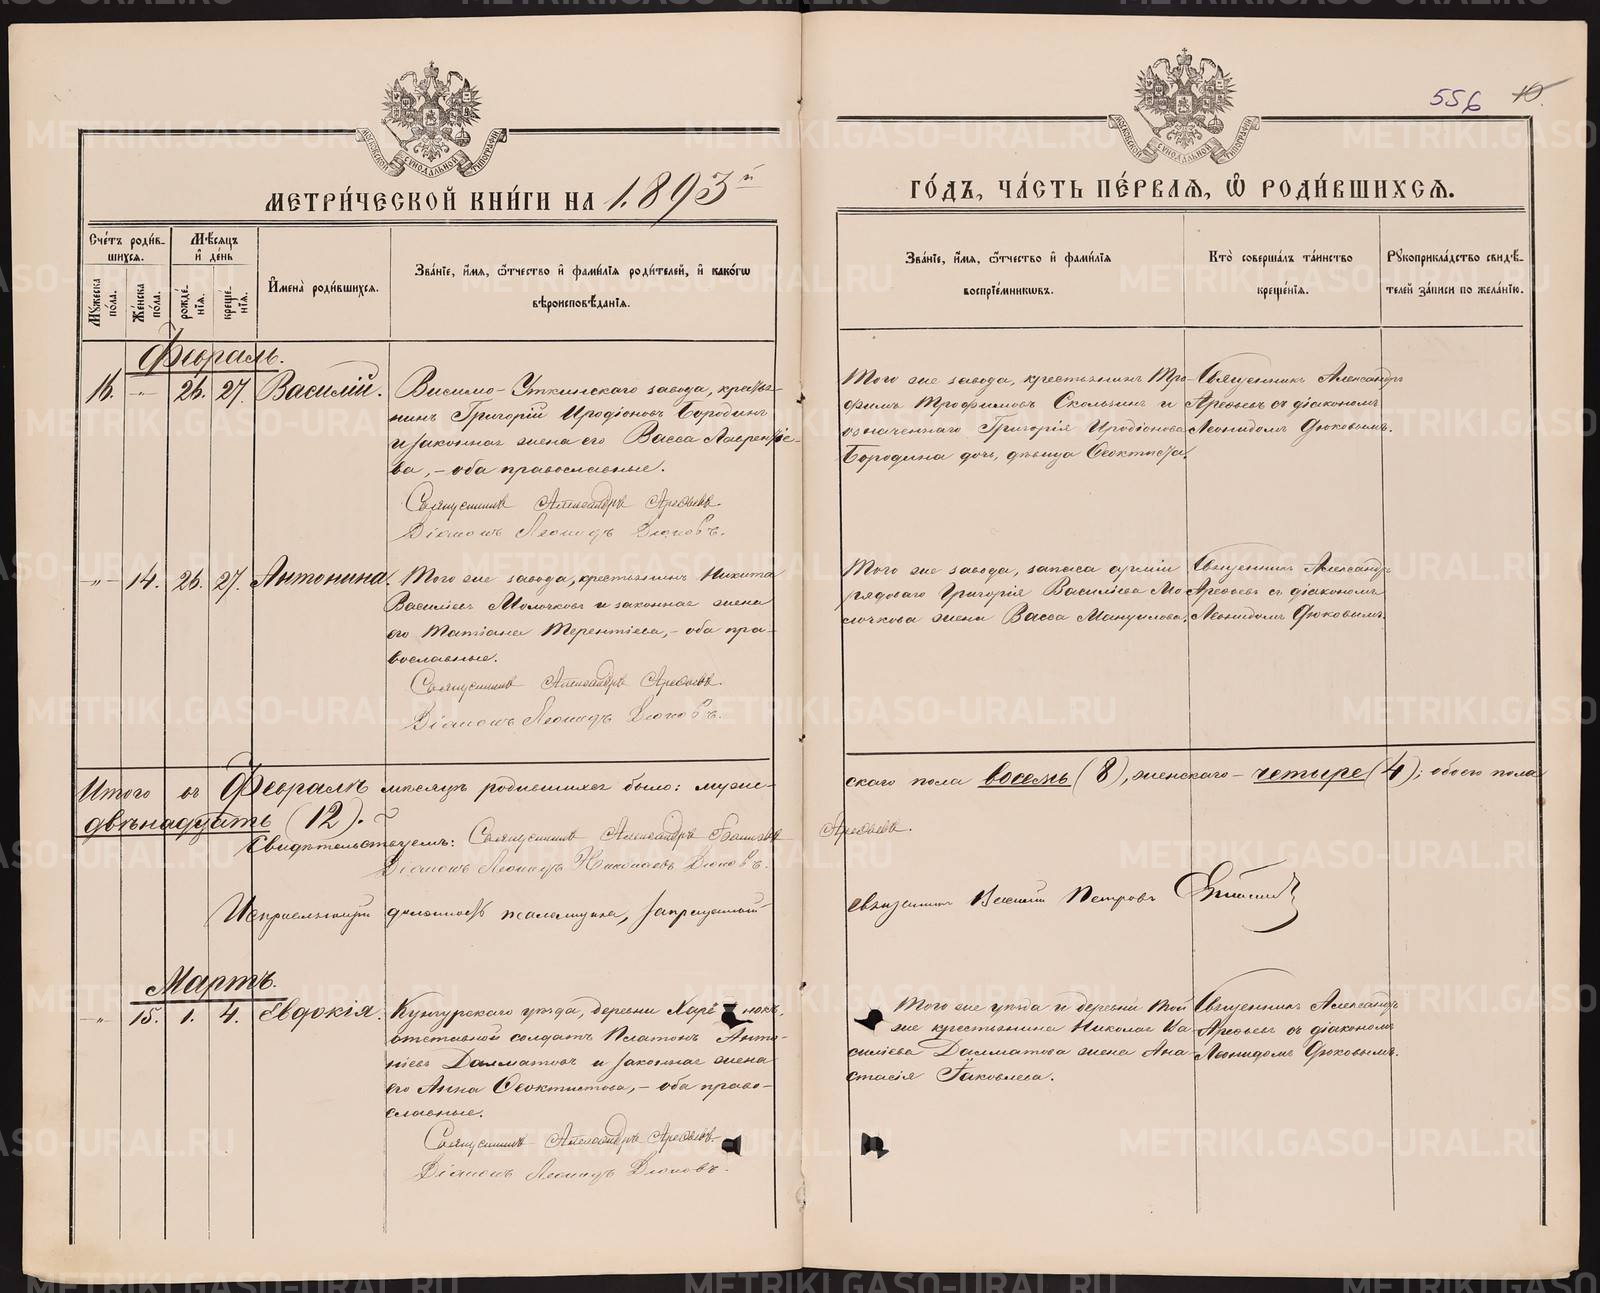 556 10.
МОСКОВСКОЙ СѴНОДАЛЬНОЙ ТИПОГРАФІИ
МОСКОВСКОЙ СѴНОДАЛЬНОЙ ТИПОГРАФІИ
МЕТРИ́ЧЕСКОЙ КНИ́ГИ НА 1893й
ГО́ДЪ, ЧА́СТЬ ПЕ́РВАЯ, Ѽ РОДИ́ВШИХСЯ.
Сче́тъ роди́в-
шихся.
Мꙋжеска пола.
Женска пола.
Мѣ́сяцъ
и҆ де́нь
рожде́-
нїя.
креще́-
нїя.
И҆мена̀ роди́вшихся.
Зва́нїе, и҆́мя, ѻ҆́тчество и҆ фами́лїя роди́телей, и҆ како́гѡ
вѣроисповѣ́данїя.
Зва́нїе, и҆́мя, ѻ҆́тчество и҆ фами́лїя
воспрїе́мникѡвъ.
Кто̀ соверша́лъ та́инство
креще́нїя.
Рꙋкоприкла́дство свидѣ́-
телей за́писи по жела́нїю.
Февраль.
16. -"- 26. 27. Василій.
Висимо-Уткинскаго завода, кресть-
янинъ Григорій Иродіоновъ Бородинъ
и законная жена его Васса Лаврентіе-
ва, - оба православные.
Священникъ Александръ Арефьевъ.
Діаконъ Леонидъ Дюковъ.
Того же завода, крестьянинъ Тро-
фимъ Трофимовъ Скользинъ и
означеннаго Григорія Иродіонова
Бородина дочь, дѣвица Ѳеоктиста.
Священникъ Александръ
Арефьевъ съ діакономъ
Леонидомъ Дюковымъ.
-"- 14. 26. 27. Антонина.
Того же завода, крестьянинъ Никита
Василіевъ Молочковъ и законная жена
его Татіана Терентіева, - оба пра-
вославные.
Священникъ Александръ Арефьевъ.
Діаконъ Леонидъ Дюковъ.
Того же завода, запаса арміи
рядоваго Григорія Василіева Мо-
лочкова жена Васса Мануилова.
Священникъ Александръ
Арефьевъ съ діакономъ
Леонидомъ Дюковымъ.
Итого въ Февралѣ мѣсяцѣ родившихся было: муже-
скаго пола восемь (8), женскаго - четыре (4); обоего пола
двѣнадцать (12).
Свидѣтельствуемъ: Священникъ Александръ Арефьевъ.
Діаконъ Леонидъ Николаевъ Дюковъ.
Исправляющій должность псаломщика, запрещенный
священникъ Василій Петровъ
Мартъ.
-"- 15. 1. 4. Евдокія.
Кунгурскаго уѣзда, деревни
отставной солдатъ Платонъ Анто-
ніевъ Далматовъ и законная жена
его Анна Ѳеоктистова, - оба право-
славные.
Священникъ Александръ Арефьевъ.
Діаконъ Леонидъ Дюковъ.
Того же уѣзда и деревни той
же крестьянина Николая Ва-
силіева Далматова жена Ана-
стасія Іаковлева.
Священникъ Александръ
Арефьевъ съ діакономъ
Леонидомъ Дюковымъ.
METRIKI.GASO-URAL.RU